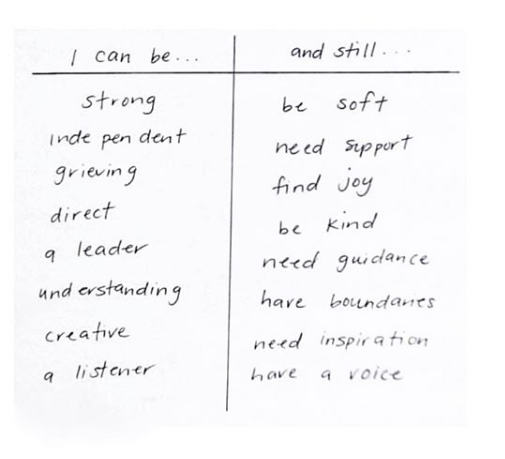 I can be... and still...
strong be soft
independent need support
grieving find joy
direct be kind
a leader need guidance
understanding have boundaries
creative need inspiration
a listener have a voice